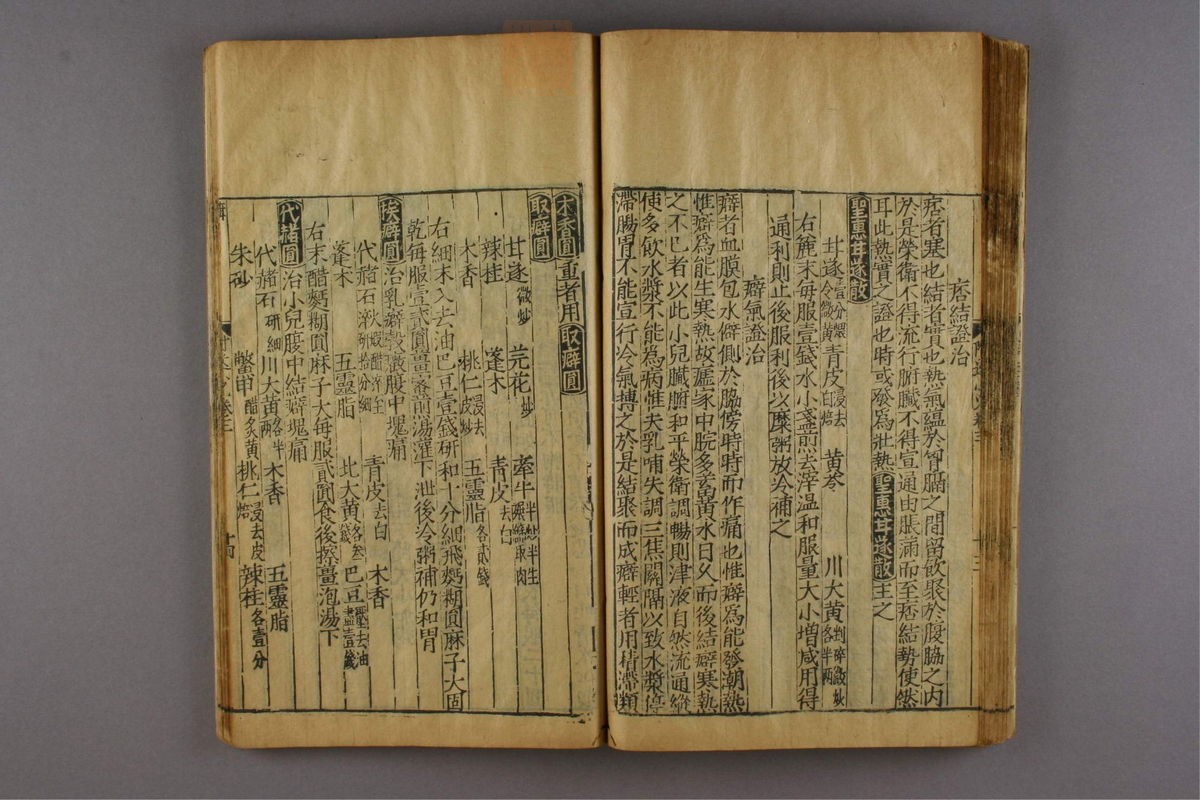 痞結證治
痞者塞也結者實也熱氣蘊於胷膈之間留飲聚於腹脇之内
於是榮衛不得流行腑臟不得宣通由脹滿而至痞結勢使然
耳此熱實之證也時或發爲壯熱聖惠甘遂散主之
聖惠甘遂散
甘遂壹分煨令微黃 青皮浸去白焙 黃芩 川大黃剉碎微炒各半兩
右麄末每服壹錢水小盞煎去滓温和服量大小增減用得
通利則止後服利後以糜粥放冷補之
癖氣證治
癖者血膜包水僻側於脇傍時時而作痛也惟癖爲能發潮熱
惟癖爲能生寒熱故瘧家中脘多畜黃水日久而後結癖寒熱
之不已者以此小兒臟腑和平榮衛調暢則津液自然流通縱
使多飲水漿不能為病惟夫乳哺失調三焦關隔以致水漿停
滯腸胃不能宣行冷氣搏之於是結聚而成癖輕者用精滯類
木香圓重者用取癖圓
取癖圓
甘遂微炒 芫花炒 牽牛半炒半生碾取肉
辣桂 蓬木 青皮去白
木香 桃仁浸去皮炒 五靈脂各貳錢
右細末入去油巴豆壹錢研和十分細飛麪糊圓麻子大固
乾每服壹貳圓薑蜜煎湯灌下泄後冷粥補仍和胃
挨癖圓治乳癖穀癥腹中塊痛
代赭石火煆醋淬至 研十分細 青皮去白 木香
蓬木 五靈脂 北大黃各叁錢 巴豆壓去油盡壹錢
右末醋麪糊圓麻子大每服貳圓食後擦薑泡湯下
代赭圓治小兒腹中結癖塊痛
代赭石研細 川大黃各半兩 木香 五靈脂
朱砂 鱉甲醋炙黃 桃仁浸去皮焙 辣桂各壹分
十四